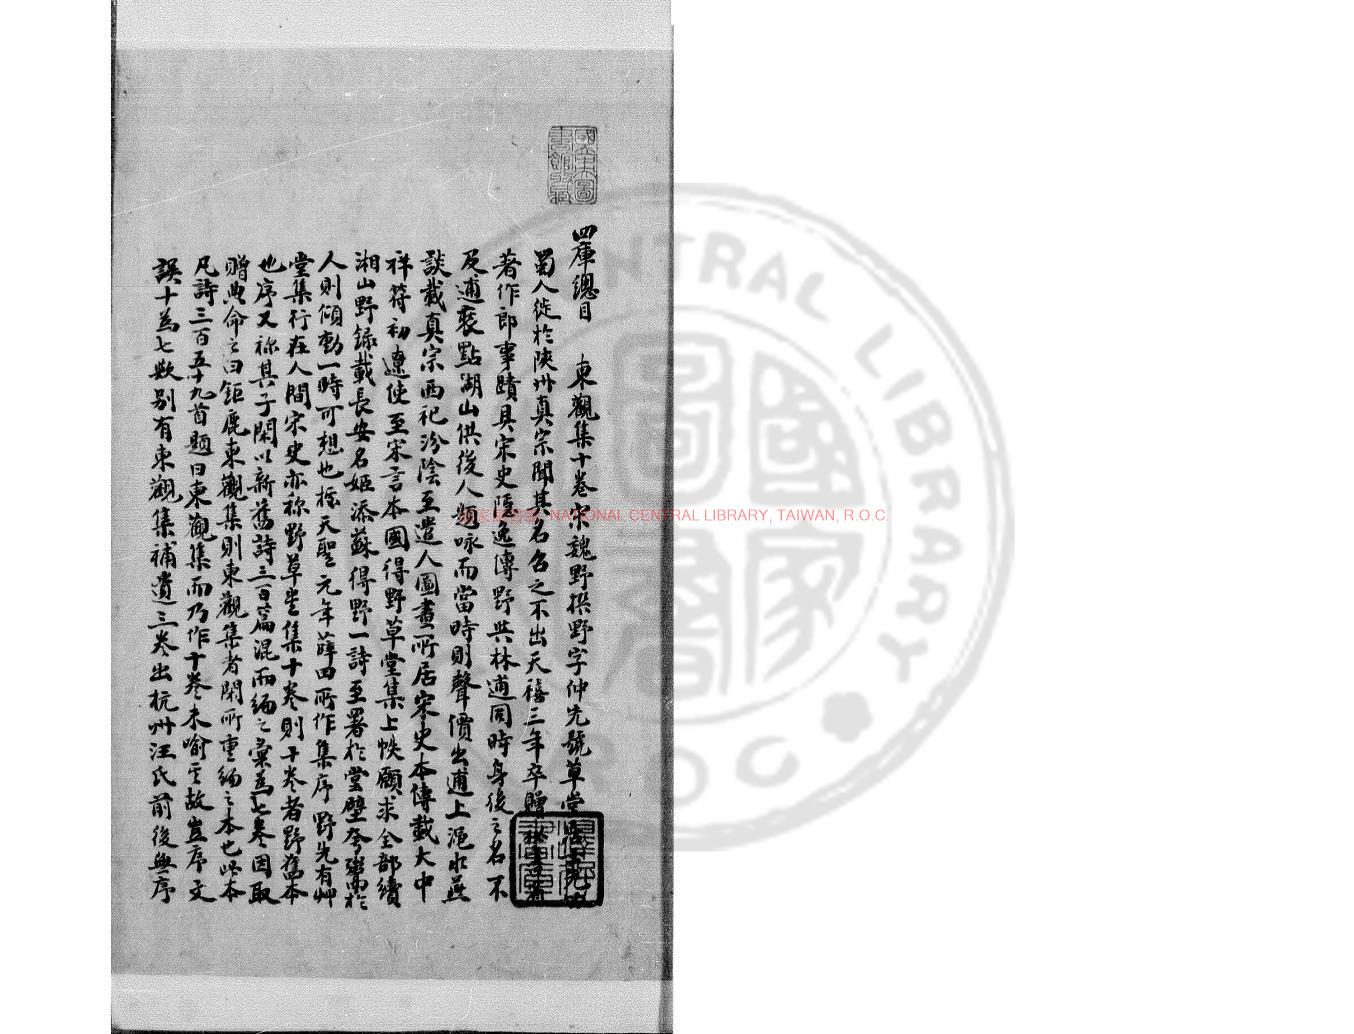 四庫總目　東觀集十卷宋魏野撰野字仲先號草堂
蜀人徙於陝州真宗聞其名召之不出天禧三年卒贈
著作郎事蹟具宋史隱逸傳野與林逋同時身後之名不
及逋裝點湖山供後人題咏而當時則聲價出逋上澠水燕
談載真宗西祀汾陰至遣人圖畫所居宋史本傳載大中
祥符初遼使至宋言本國得野草堂集上帙願求全部續
湘山野錄載長安名姬添蘇得野一詩至署於堂壁夸衒於
人則傾動一時可想也校天聖元年薛田所作集序野先有艸
堂集行在人間宋史亦称野草堂集十卷則十卷者野舊本
也序又称其子閑以新舊詩三百篇混而編之彙為七卷因取
贈典命之曰鉅鹿東觀集則東觀集者閑所重編之本也此本
凡詩三百五十九首題曰東觀集而乃作十卷未喻其故豈序文
誤十為七歟别有東觀集補遺三卷出杭州汪氏前後無序
國立中央圖書館收藏
NATIONAL CENTRAL LIBRARY, TAIWAN, R.O.C.
NTRAL LIBRARY
R O C